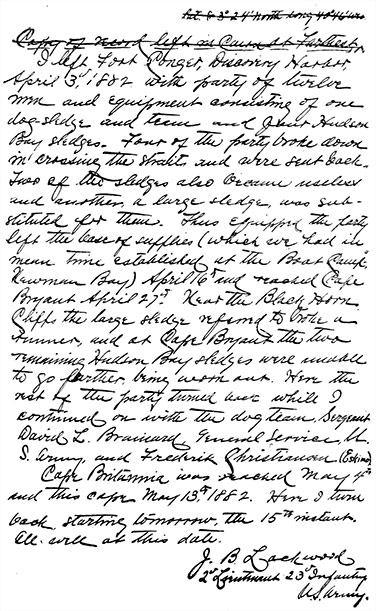 Lat. 83° 24' North Long 40° 46' W.
Copy of record left in Cairn at Farthest.
I left Fort Conger, Discovery Harbor
April 3d, 1882 with party of twelve
men and equipment consisting of one
dog sledge and team and four Hudson
Bay sledges. Four of the party broke down
in crossing the strait and were sent back.
Two of the sledges also became useless
and another, a large sledge, was sub-
stituted for them. Thus equipped the party
left the base of supplies (which we had in
mean time established at the Boat Camp,
Newman Bay) April 16th and reached Cape
Bryant April 27th. Near the Black Horn
Cliffs the large sledge refered to broke a
runner, and at Cape Bryant the two
remaining Hudson Bay sledges were unable
to go further, being worn out. Here the
rest of the party turned back while I
continued on with the dog team, Sergeant
David L. Brainard General Service, U.
S. Army and Frederik Christiansen (Eskimo)
Cape Britannia was reached May 4th
and this cape May 13th 1882. Here I turn
back, starting tomorrow, the 15th instant.
All well at this date.
J. B. Lockwood
2d Lieutenant 23d Infantry
U.S. Army.